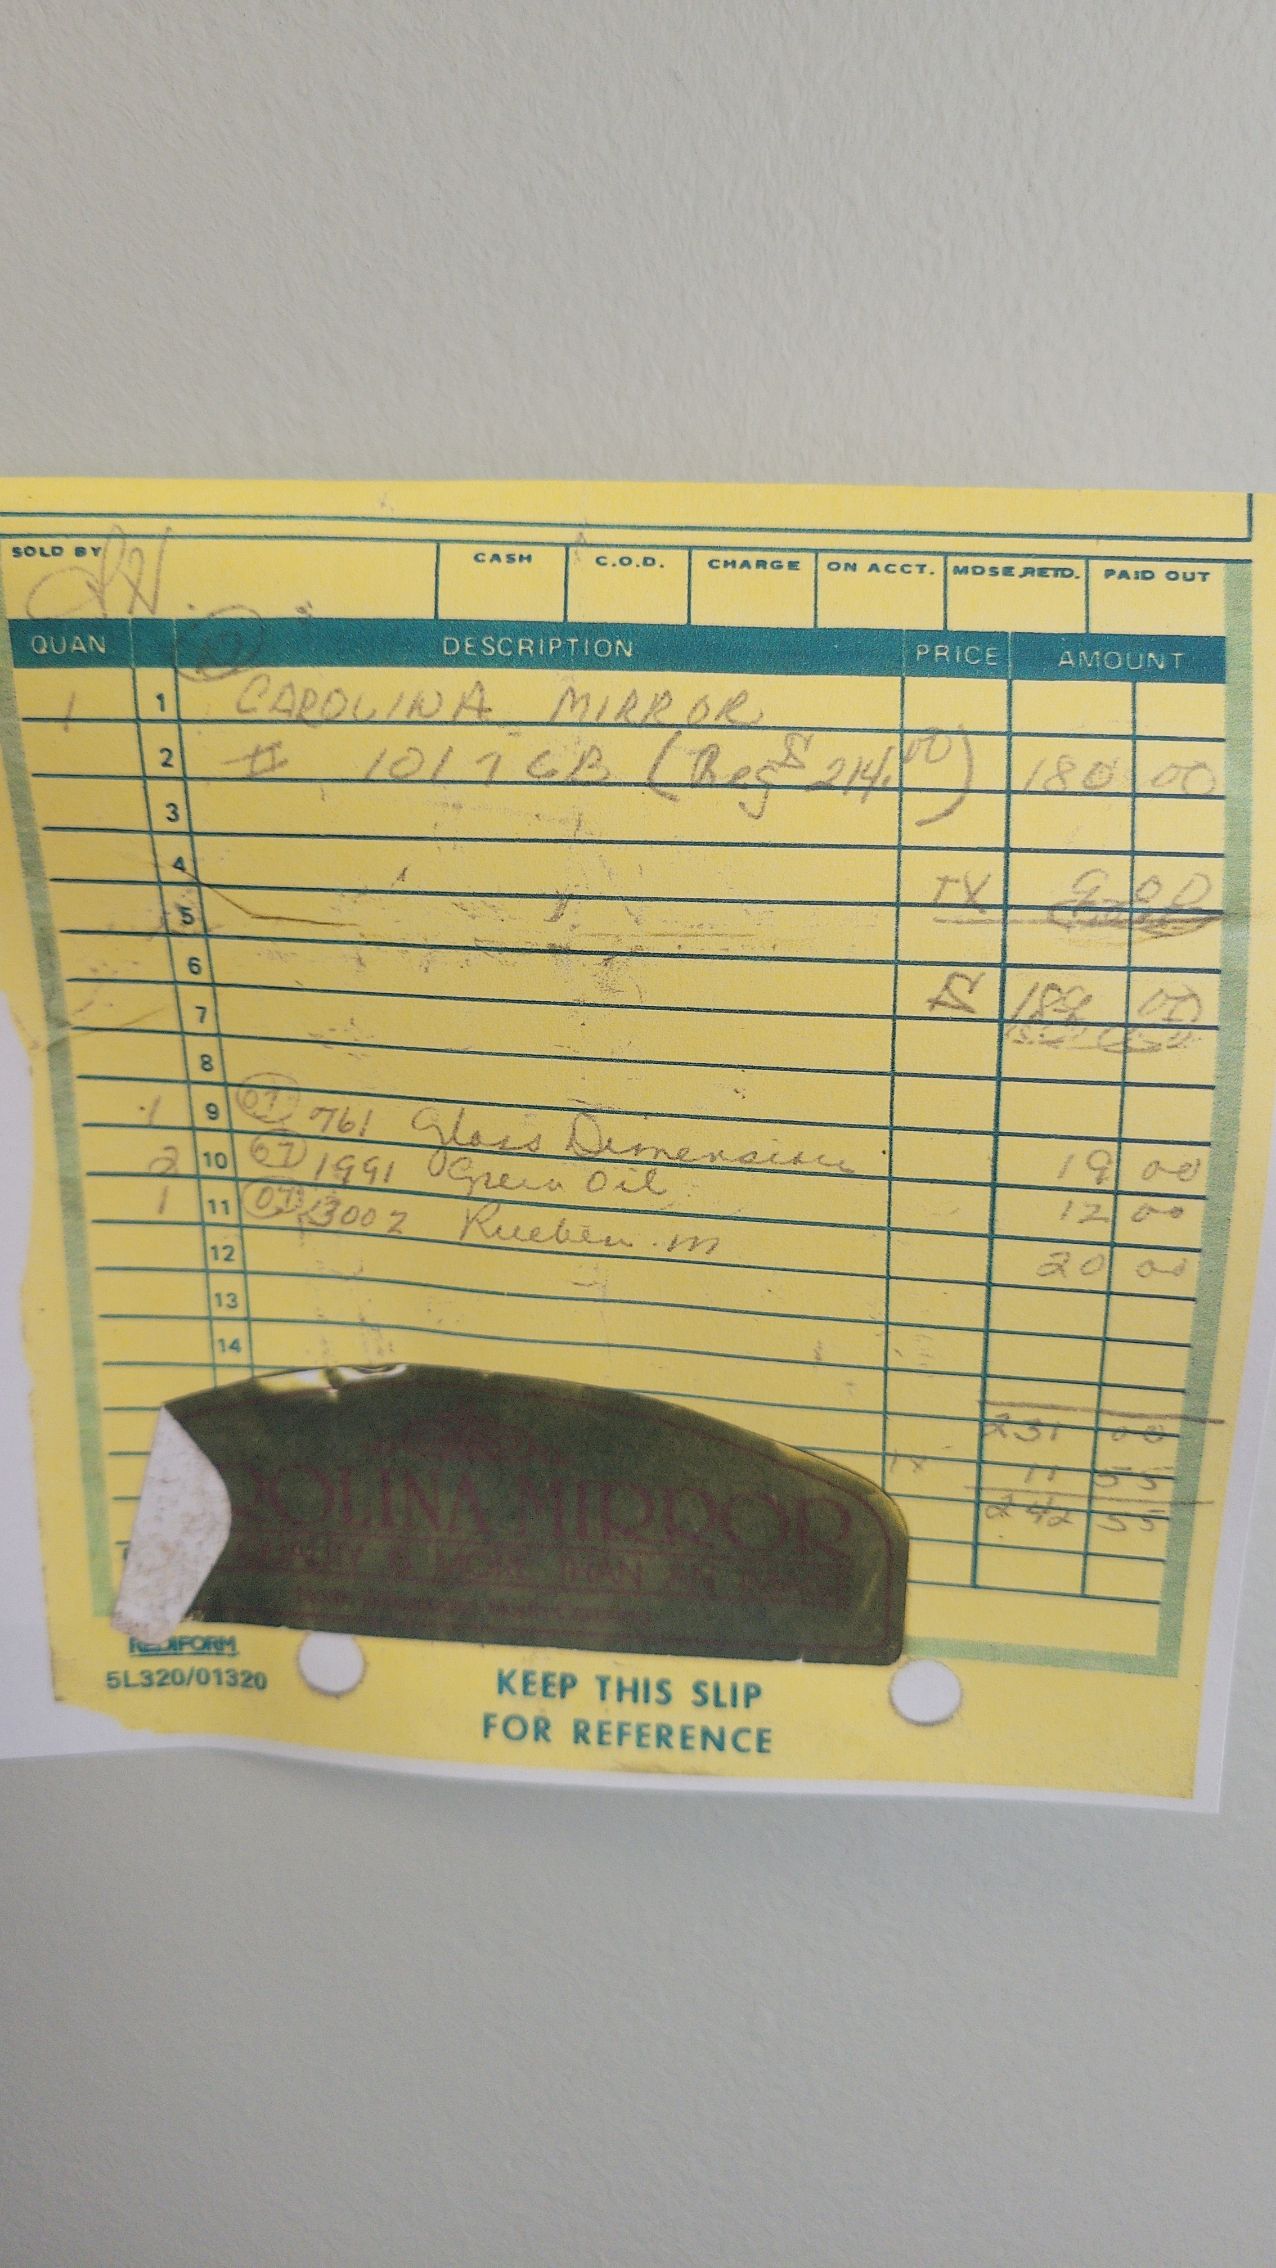 SOLD BY CASH C.O.D. CHARGE ON ACCT. MDSE, RETD. PAID OUT
QUAN DESCRIPTION PRICE AMOUNT
1 1 CAROLINA MIRROR
2 # 1017 GB (Reg $ 214.00) 180 00
3
4 TX 9 00
5
6 $ 189 00
7
8
1 9 07 761 Glass Dimension 19 00
2 10 07 1991 Green Oil 12 00
1 11 07 3002 Rueben. m 20 00
12
13
14
231 00
TX 11 55
242 55
ROLINA MIRROR
REDIFORM
5L320/01320
KEEP THIS SLIP
FOR REFERENCE